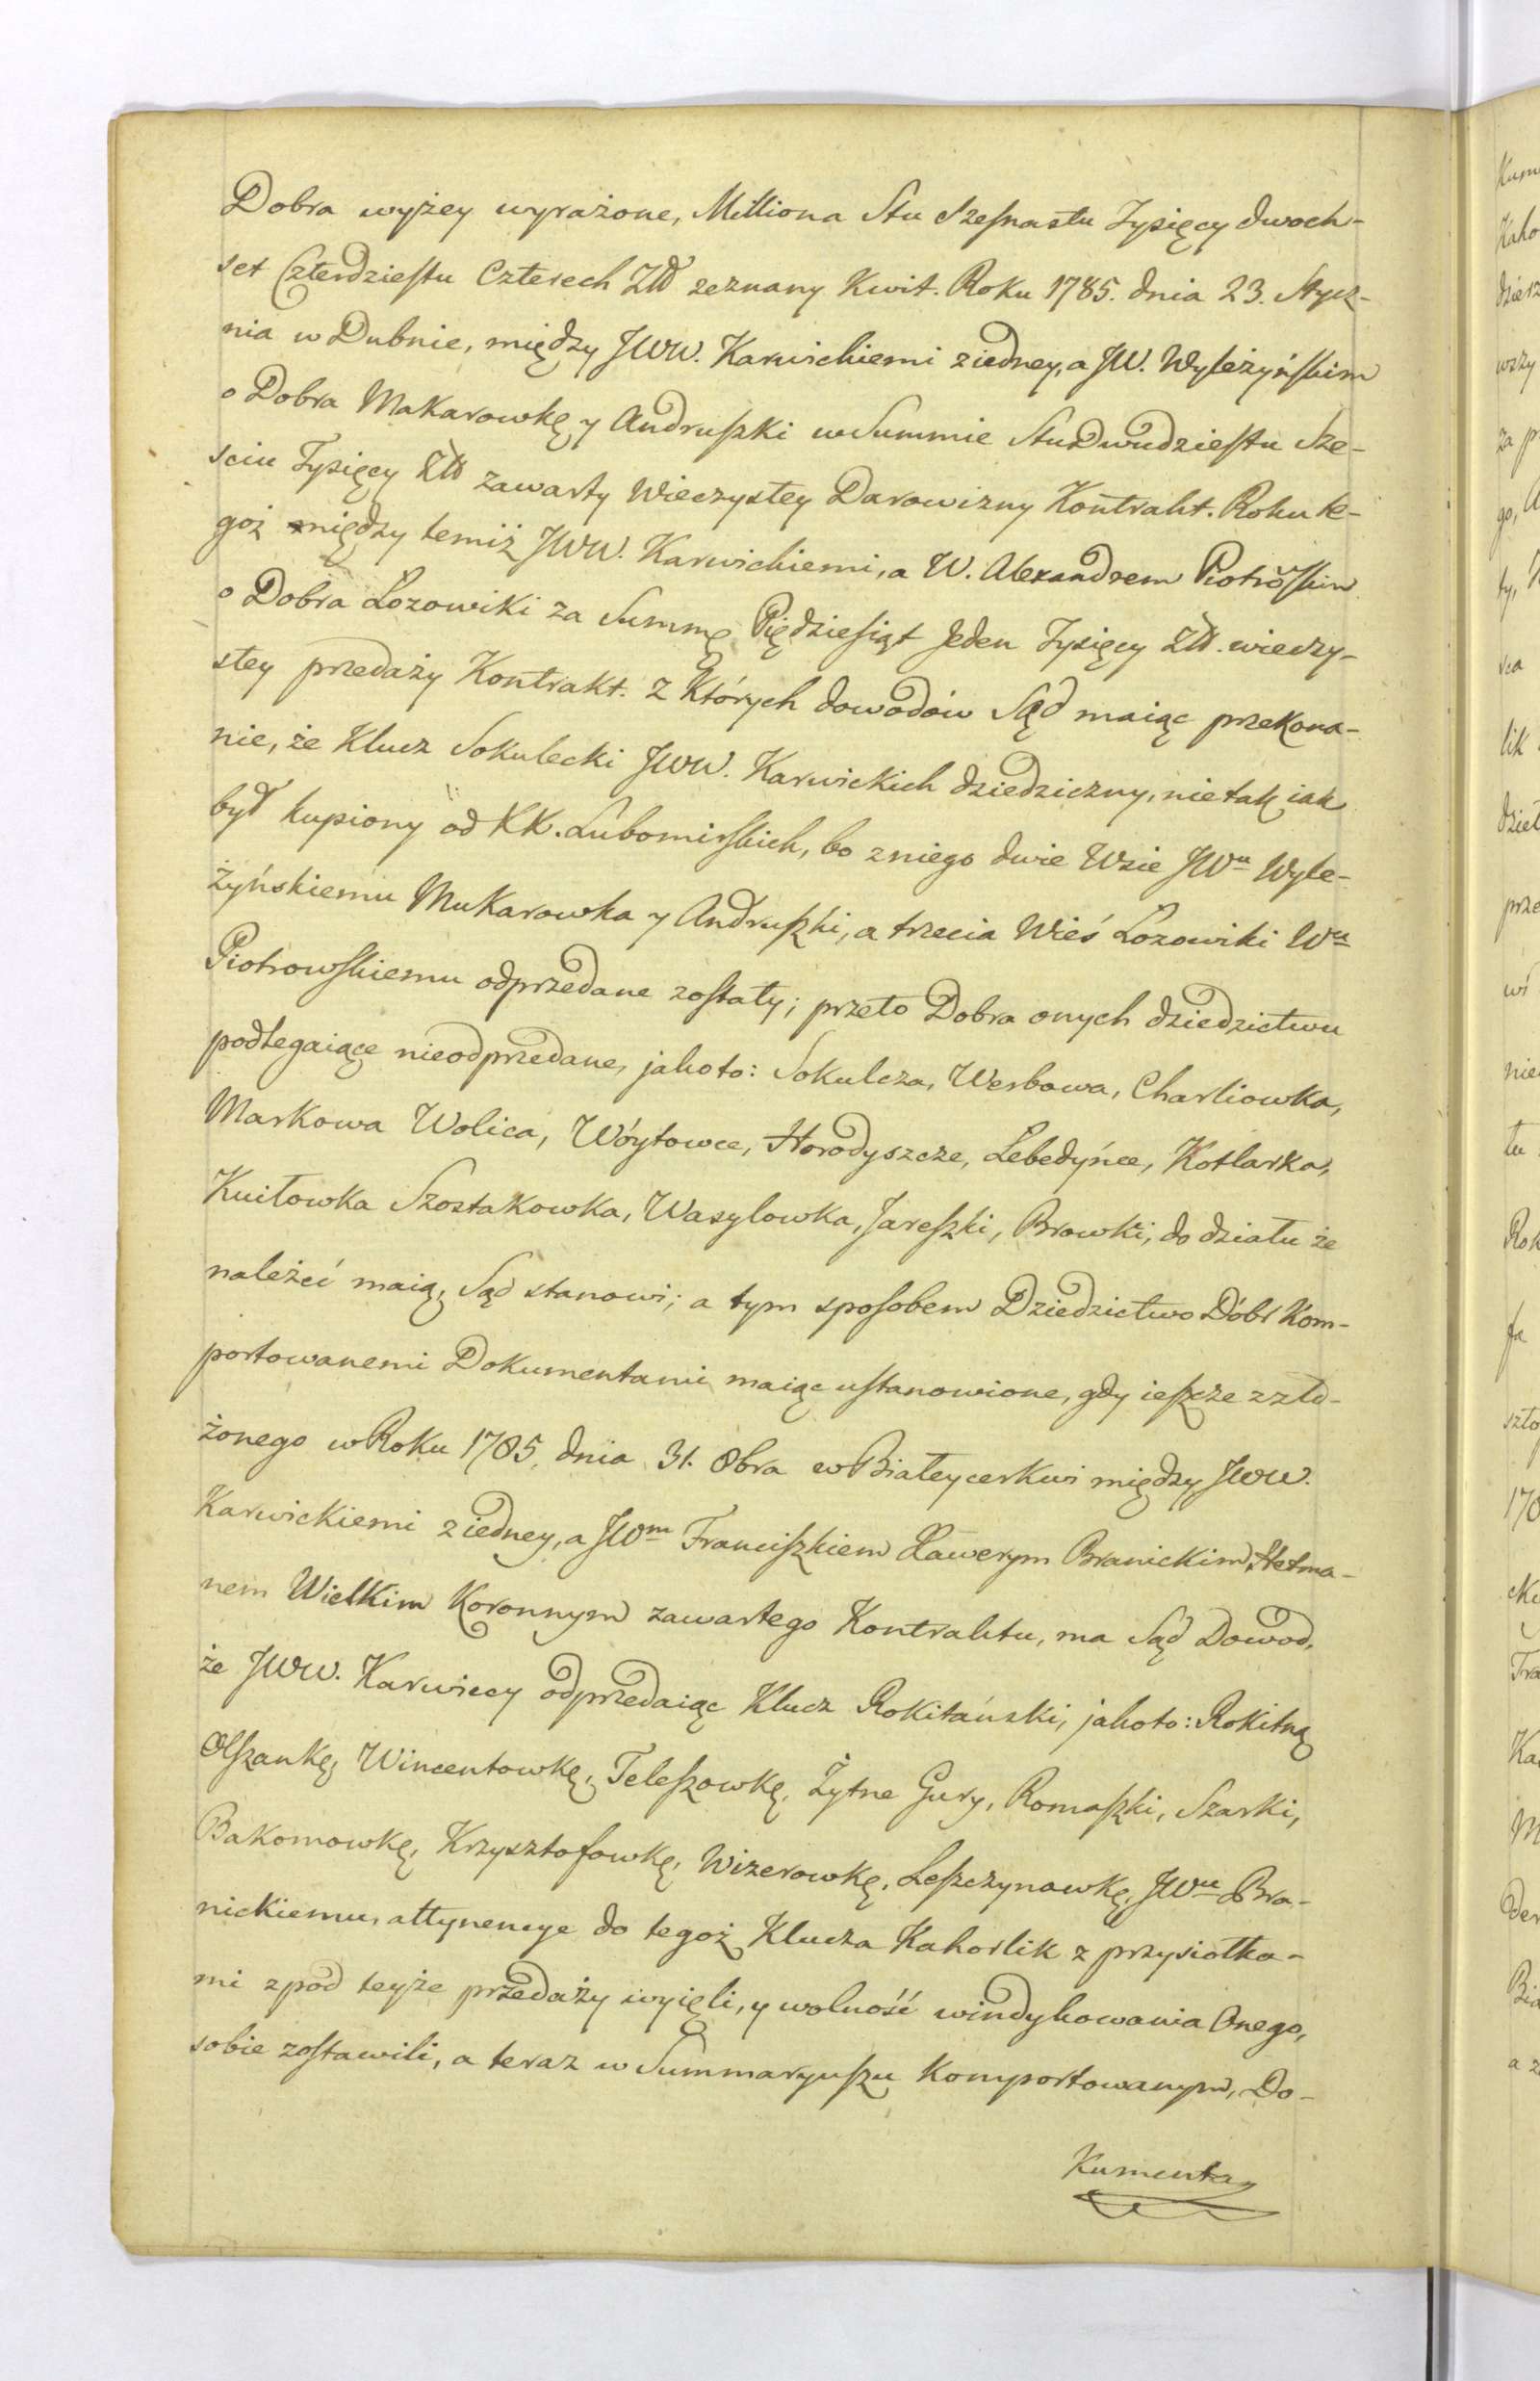 Dobra wyżey wyrażone, Milliona Stu Szesnastu Tysięcy dwoch-
set Czterdziestu Czterech Złł zeznany Kwit. Roku 1785. dnia 23. Stycz-
nia w Dubnie, między JWW. Karwickiemi z iedney, a JW. Wyleżyńskim
o Dobra Makarowkę y Andruszki w Summie Stu Dwudziestu Sze-
sciu Tysięcy Złł zawarty Wieczystey Darowizny Kontrakt. Roku te-
goż między temiż JWW. Karwickiemi, a W. Alexandrem Piotrowskim
o Dobra Lozowiki za Summę Piędziesiąt Jeden Tysięcy Złł. wieczy-
stey przedaży Kontrakt. Z Których dowodów Sąd maiąc przekona-
nie, że Klucz Sokulecki JWW. Karwickich dziedziczny, nie tak iak
był kupiony od KK. Lubomirskich, bo z niego dwie Wsie JWu Wyle-
żyńskiemu Makarowka y Andruszki, a trzecia Wieś Lozowiki Wu
Piotrowskiemu odprzedane zostały; przeto Dobra onych dziedzictwu
podlegaiące nieodprzedane, jakoto: Sokulcza, Werbowa, Charliowka,
Markowa Wolica, Wóytowce, Horodyszcze, Lebedyńce, Kotlarka,
Kuiłowka Szostakowka, Wasylowka, Jareszki, Browki; do działu że
należeć maią, Sąd stanowi; a tym sposobem Dziedzictwo Dóbr Kom-
portowanemi Dokumentami maiąc ustanowione, gdy ieszcze z zło-
żonego w Roku 1785, dnia 31. 8bra w Białeycerkwi między JWW.
Karwickiemi z iedney, a JWm Franciszkiem Xawerym Branickim Hetma-
nem Wielkim Koronnym zawartego Kontraktu, ma Sąd Dowod,
że JWW. Karwiccy odprzedaiąc Klucz Rokitański, jakoto: Rokitnę
Olszankę, Wincentowkę, Teleszowkę, Żytne Gury, Romaszki, Szarki,
Bakomowkę, Krzysztofowkę, Wizerowkę, Leszczynowkę, JWu Bra-
nickiemu, attynencye do tegoż Klucza Kahorlik z przysiołka-
mi z pod teyże przedaży wyięli, y wolność windykowania Onego,
sobie zostawili, a teraz w Summaryuszu Komportowanym, Do-
Kumenta